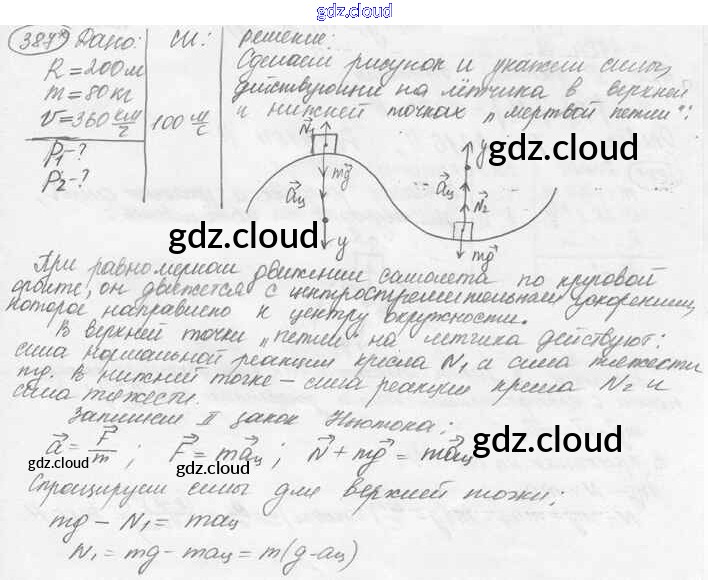 gdz.cloud
387* Дано: СИ: Решение:
R = 200 м
m = 80 кг
v = 360 км/ч 100 м/с
P₁ - ?
P₂ - ?
Сделаем рисунок и укажем силы,
действующие на лётчика в верхней
и нижней точках „мертвой петли":
N₁ mg aц y
aц y N₂ mg
gdz.cloud
gdz.cloud
При равномерном движении самолета по круговой
орбите, он движется с центростремительным ускорением,
которое направлено к центру окружности.
В верхней точки „петли" на летчика действуют:
сила нормальной реакции кресла N₁ и сила тяжести
mg. В нижней точке – сила реакции кресла N₂ и
сила тяжести.
Запишем II закон Ньютона:
a = F/m ; F = maц ; N + mg = maц
gdz.cloud gdz.cloud gdz.cloud
Спроецируем силы для верхней точки;
mg – N₁ = maц
N₁ = mg – maц = m(g – aц)